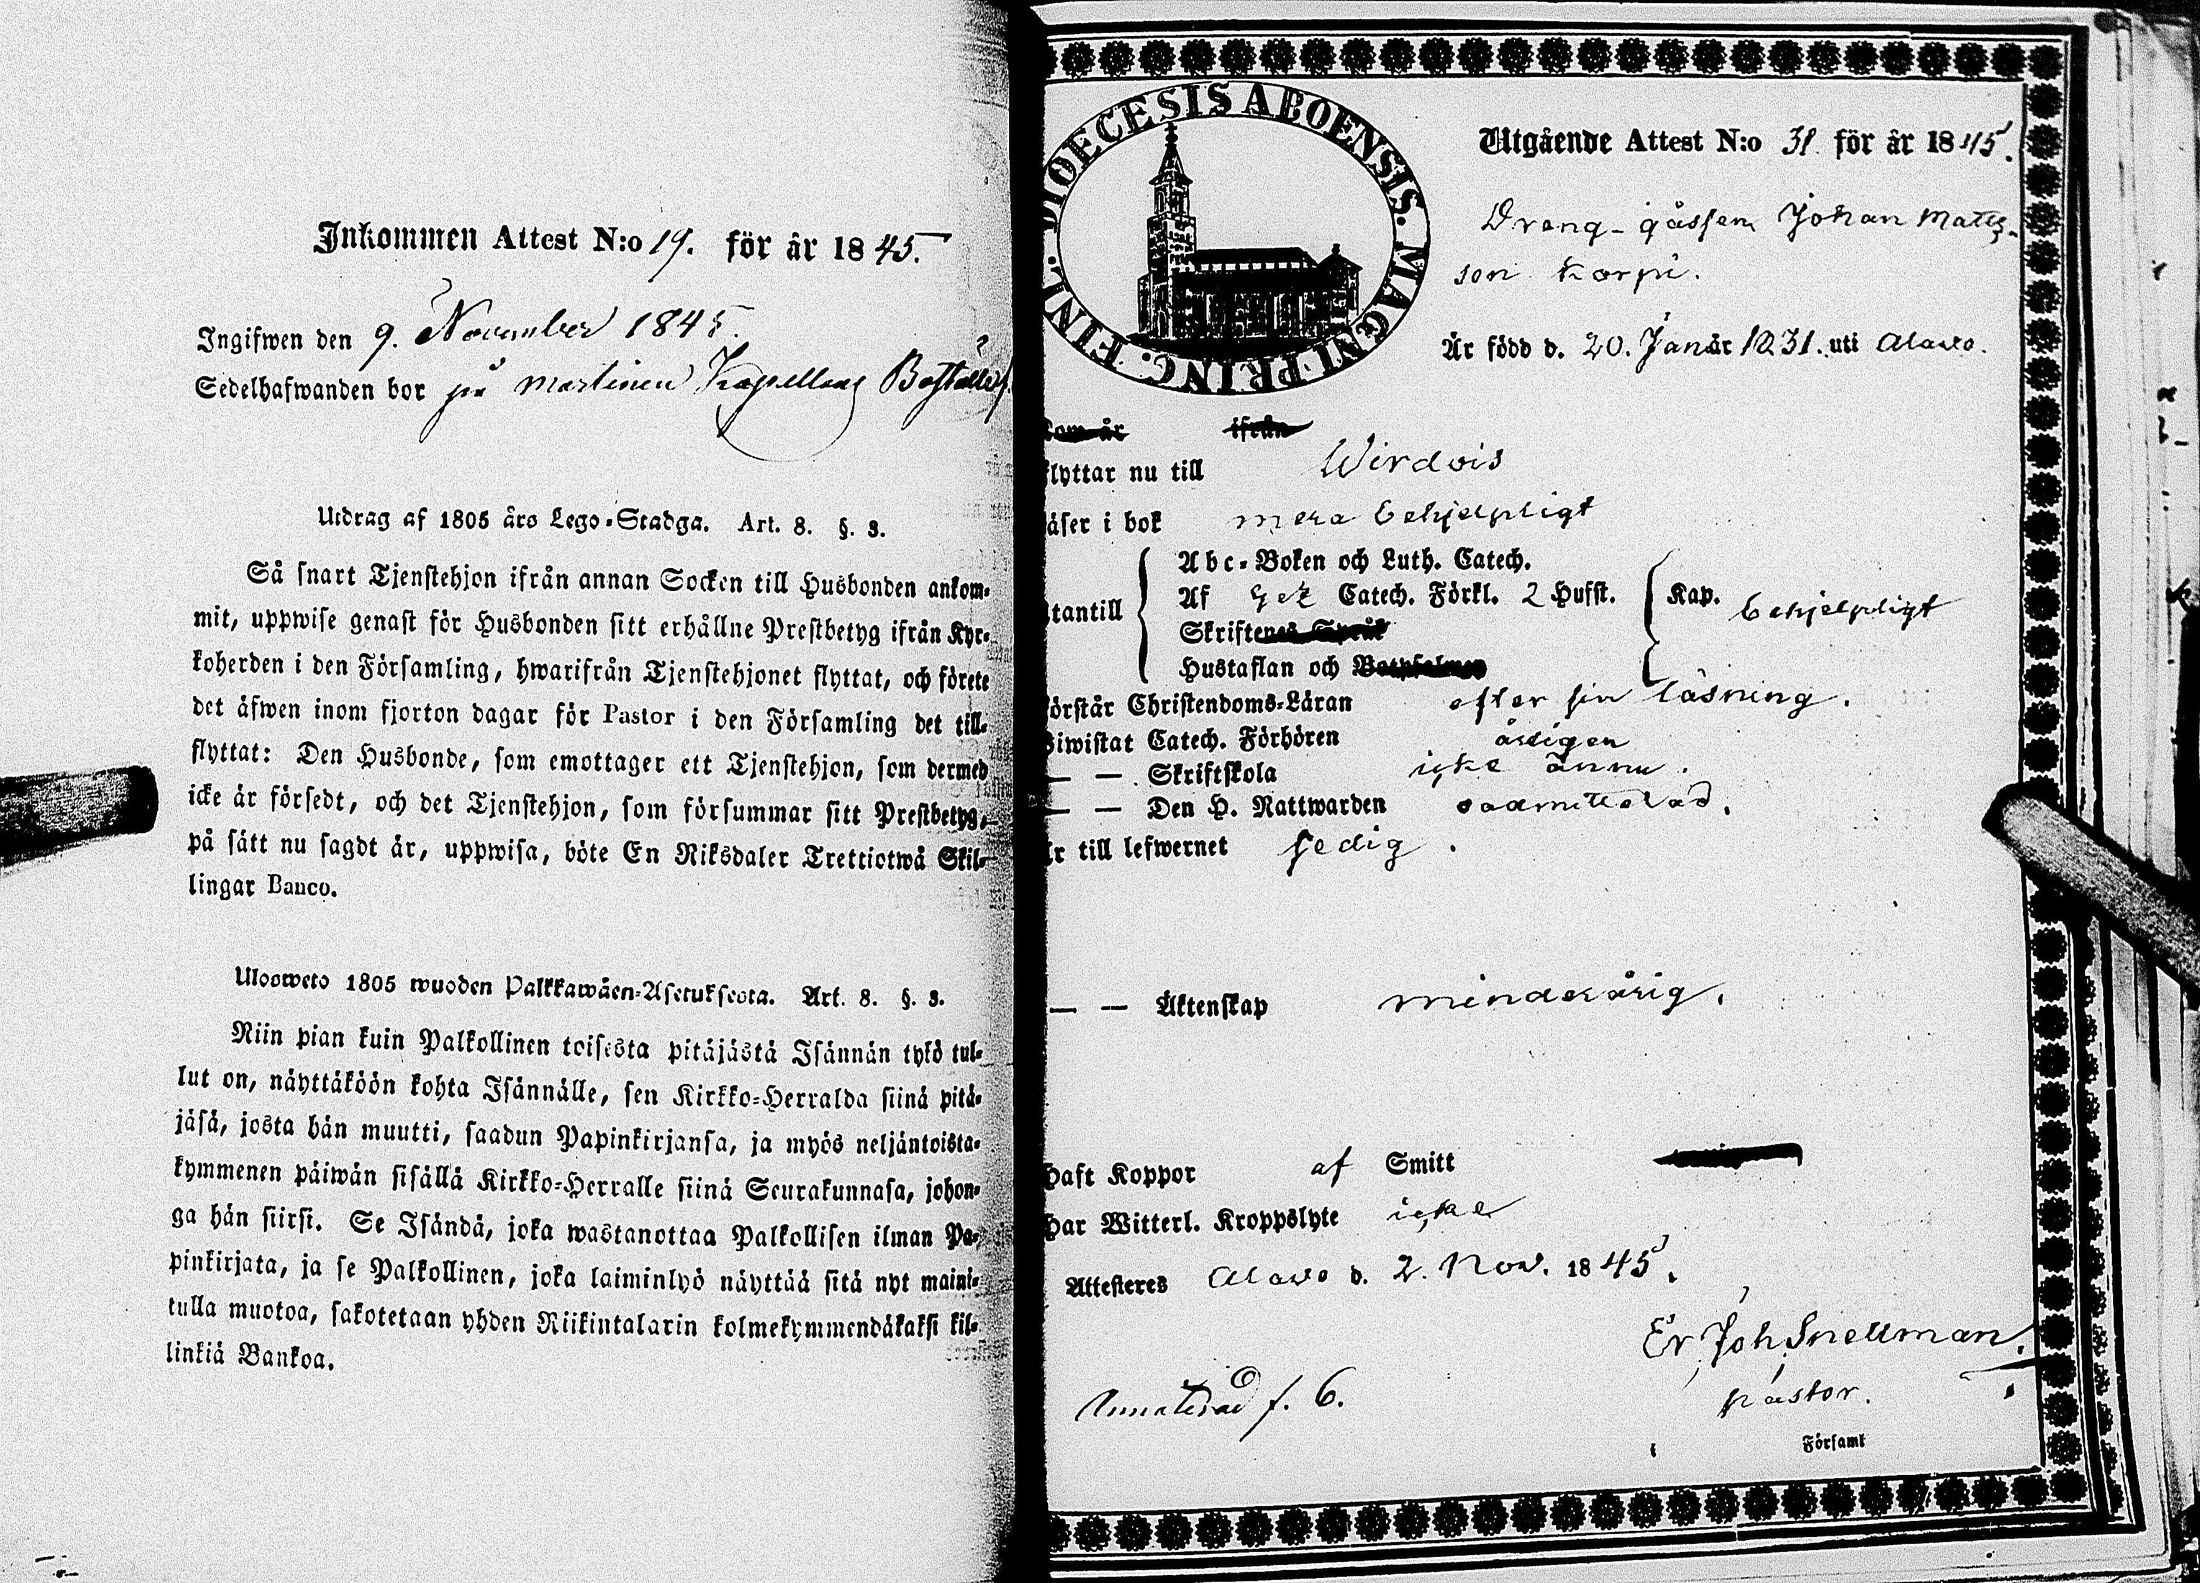 Inkommen Attest N:o 19. för år 1845.
Ingifwen den 9. November 1845.
Sedelhafwanden bor på Martinen Kapellans Boställe
Utdrag af 1805 års Lego-Stadga. Art. 8. §. 3.
Så snart Tjenstehjon ifrån annan Socken till Husbonden ankom-
mit, uppwise genast för Husbonden sitt erhållne Prestbetyg ifrån Kyr-
koherden i den Församling, hwarifrån Tjenstehjonet flyttat, och förete
det äfwen inom fjorton dagar för Pastor i den Församling det till-
flyttat: Den Husbonde, som emottager ett Tjenstehjon, som dermed
icke är försedt, och det Tjenstehjon, som försummar sitt Prestbetyg,
på sätt nu sagdt är, uppwisa, böte En Riksdaler Trettiotwå Skil-
lingar Banco.
Ulosweto 1805 wuoden Palkkawäen-Asetuksesta. Art. 8. §. 3.
Niin pian kuin Palkollinen toisesta pitäjästä Isännän tykö tul-
lut on, näyttäköön kohta Isännälle, sen Kirkko-Herralda siinä pitä-
jäsä, josta hän muutti, saadun Papinkirjansa, ja myös neljäntoista-
kymmenen päiwän sisällä Kirkko-Herralle siinä Seurakunnasa, johon-
ga hän siirsi. Se Isändä, joka wastanottaa Palkollisen ilman Pa-
pinkirjata, ja se Palkollinen, joka laiminlyö näyttää sitä nyt maini-
tulla muotoa, sakotetaan yhden Riikintalarin kolmekymmendäkaksi kil-
linkiä Bankoa.
DIOECESIS ABOENSIS. MAGNI PRINC. FINL.
Utgående Attest N:o 31. för år 1845.
Dreng-gåssen Johan Matts-
son Korpi.
Är född d. 20. Januar 1831. uti Alavo.
Kom år ifrån
flyttar nu till Wirdois
läser i bok mera behjelpligt
Abc-Boken och Luth. Catech.
utantill Af Gez Catech. Förkl. 2 Hufst. Kap. behjelpligt
Skriftenes Språk
Hustaflan och Botpsalmer
förstår Christendoms-Läran efter sin läsning.
Biwistat Catech. Förhören årligen
— — Skriftskola icke ännu.
— — Den H. Nattwarden oadmitterad.
Är till lefwernet sedig.
— — Äktenskap minderårig.
Haft Koppor af Smitt
Har Witterl. Kroppslyte icke
Attesteres Alavo d. 2. Nov. 1845.
Er. Joh Snellman.
pastor.
Annoterad f. 6.
Församl